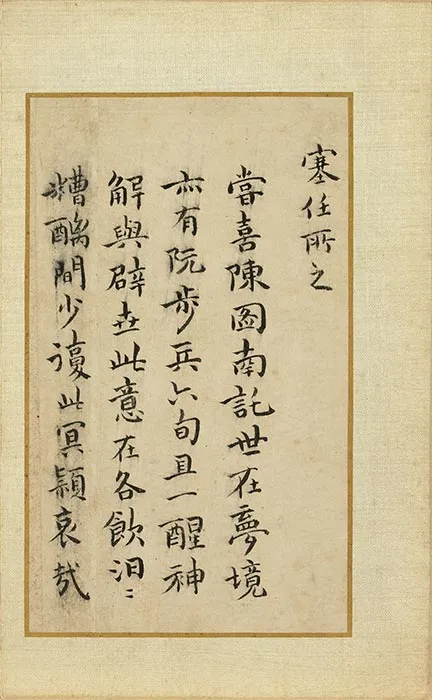 塞任所之
甞喜陳圖南託世在夢境
亦有阮步兵六旬且一醒神
解與辟世此意在各飲汩〻
糟醨間少復此冥穎哀哉